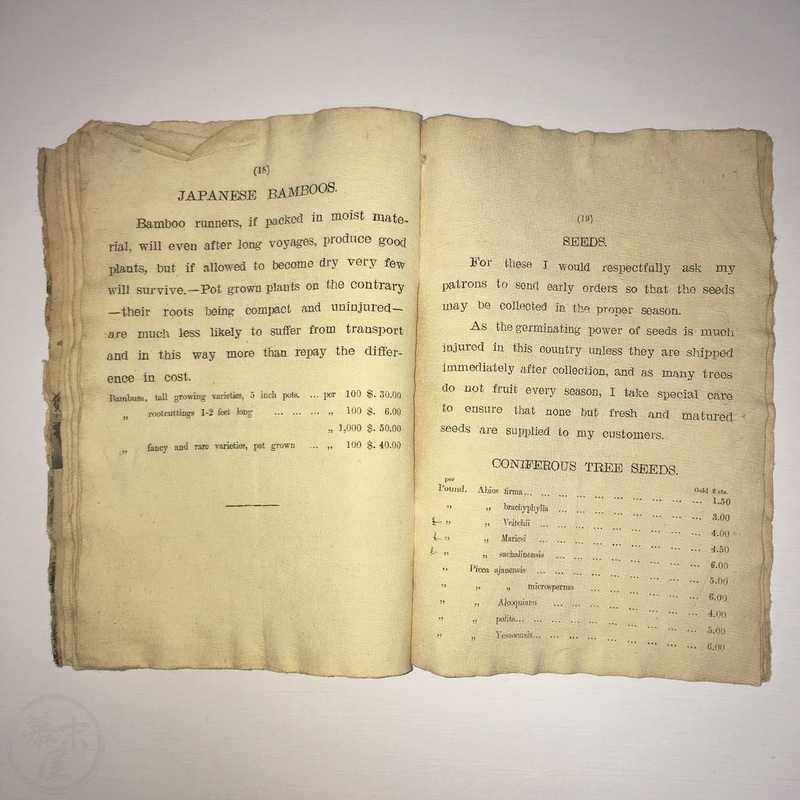 (18)
JAPANESE BAMBOOS.
Bamboo runners, if packed in moist mate-
rial, will even after long voyages, produce good
plants, but if allowed to become dry very few
will survive.—Pot grown plants on the contrary
—their roots being compact and uninjured—
are much less likely to suffer from transport
and in this way more than repay the differ-
ence in cost.
Bambusa, tall growing varieties, 5 inch pots. ... per 100 $. 30.00
„ rootcuttings 1-2 feet long ... ... ... „ 100 $. 6.00
„ 1,000 $. 50.00
„ fancy and rare varieties, pot grown ... „ 100 $. 40.00
(19)
SEEDS.
For these I would respectfully ask my
patrons to send early orders so that the seeds
may be collected in the proper season.
As the germinating power of seeds is much
injured in this country unless they are shipped
immediately after collection, and as many trees
do not fruit every season, I take special care
to ensure that none but fresh and matured
seeds are supplied to my customers.
CONIFEROUS TREE SEEDS.
per Gold $ cts.
Pound. Abies firma... ... ... ... ... ... ... ... 1.50
„ „ brachyphylla ... ... ... ... ... ... 3.00
„ „ Veitchii ... ... ... ... ... ... ... 4.00
„ „ Mariesi ... ... ... ... ... ... ... 4.50
„ „ sachalinensis ... ... ... ... ... ... 6.00
„ Picea ajanensis ... ... ... ... ... ... ... 5.00
„ „ „ microsperma ... ... ... ... ... 6.00
„ „ Alcoquiana ... ... ... ... ... ... 4.00
„ „ polita... ... ... ... ... ... ... ... 5.00
„ „ Yessoensis... ... ... ... ... ... ... 6.00